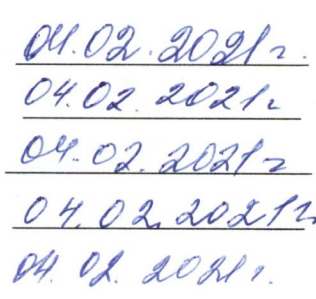 04.02.2021г.
04.02.2021г
04.02.2021г
04.02.2021г
04.02.2021г.